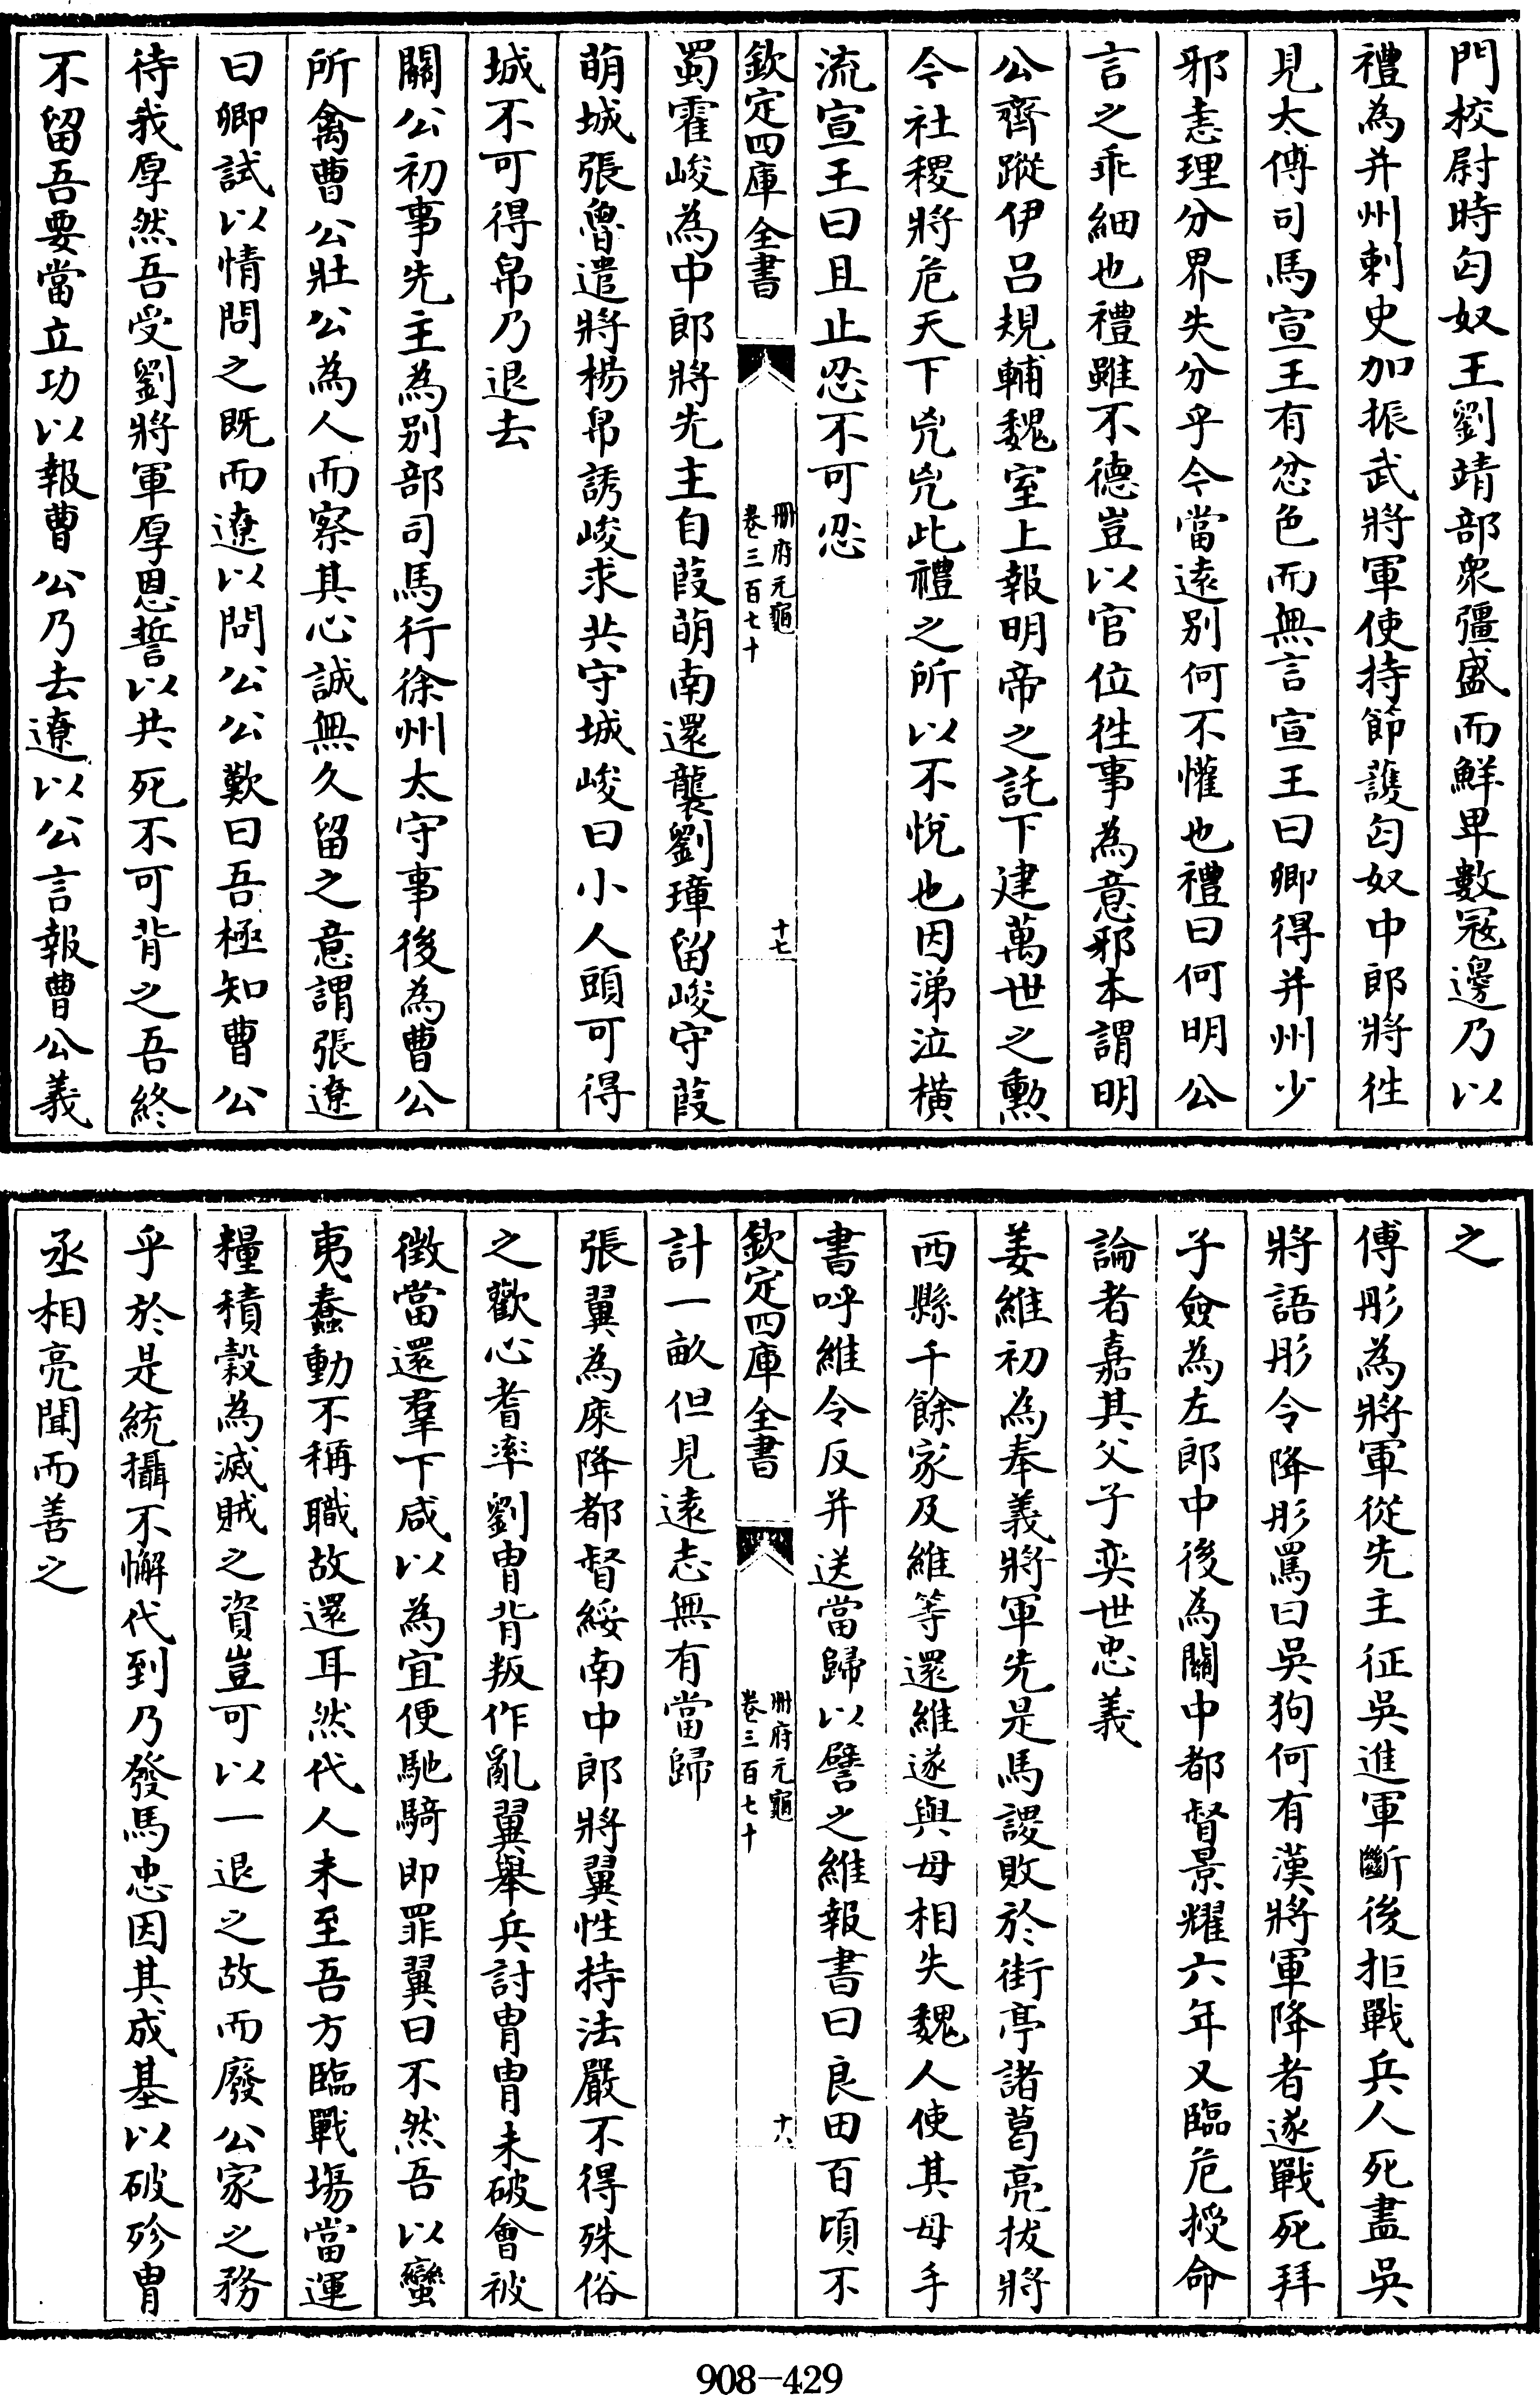 門校尉時匈奴王劉靖部衆彊盛而鮮卑數冦邊乃以
禮為并州刺史加振武將軍使持節護匈奴中郎將徃
見太傅司馬宣王有忿色而無言宣王曰卿得并州少
邪恚理分界失分乎今當逺别何不懽也禮曰何明公
言之乖細也禮雖不德豈以官位徃事為意邪本謂明
公齊蹤伊吕規輔魏室上報明帝之託下建萬世之勲
今社稷將危天下兇兇此禮之所以不悅也因涕泣橫
流宣王曰且止忍不可忍
欽定四庫全書
冊府元龜
卷三百七十
十七
蜀霍峻為中郎將先主自葭萌南還襲劉璋留峻守葭
萌城張魯遣將楊帛誘峻求共守城峻曰小人頭可得
城不可得帛乃退去
關公初事先主為别部司馬行徐州太守事後為曹公
所禽曹公壯公為人而察其心誠無久留之意謂張遼
曰卿試以情問之既而遼以問公公歎曰吾極知曹公
待我厚然吾受劉將軍厚恩誓以共死不可背之吾終
不留吾要當立功以報曹公乃去遼以公言報曹公義
之
傅彤為將軍從先主征吳進軍斷後拒戰兵人死盡吳
將語彤令降彤罵曰吳狗何有漢將軍降者遂戰死拜
子僉為左郎中後為關中都督景耀六年又臨危授命
論者嘉其父子奕世忠義
姜維初為奉義將軍先是馬謖敗於街亭諸葛亮拔將
西縣千餘家及維等還維遂與母相失魏人使其母手
書呼維令反并送當歸以譬之維報書曰良田百頃不
欽定四庫全書
冊府元龜
卷三百七十
十八
計一畝但見逺志無有當歸
張翼為庲降都督綏南中郎將翼性持法嚴不得殊俗
之歡心耆率劉胄背叛作亂翼舉兵討胄胄未破會被
徴當還羣下咸以為宜便馳騎即罪翼曰不然吾以蠻
夷蠢動不稱職故還耳然代人未至吾方臨戰場當運
糧積穀為滅賊之資豈可以一退之故而廢公家之務
乎於是統攝不懈代到乃發馬忠因其成基以破殄胄
丞相亮聞而善之
908-429